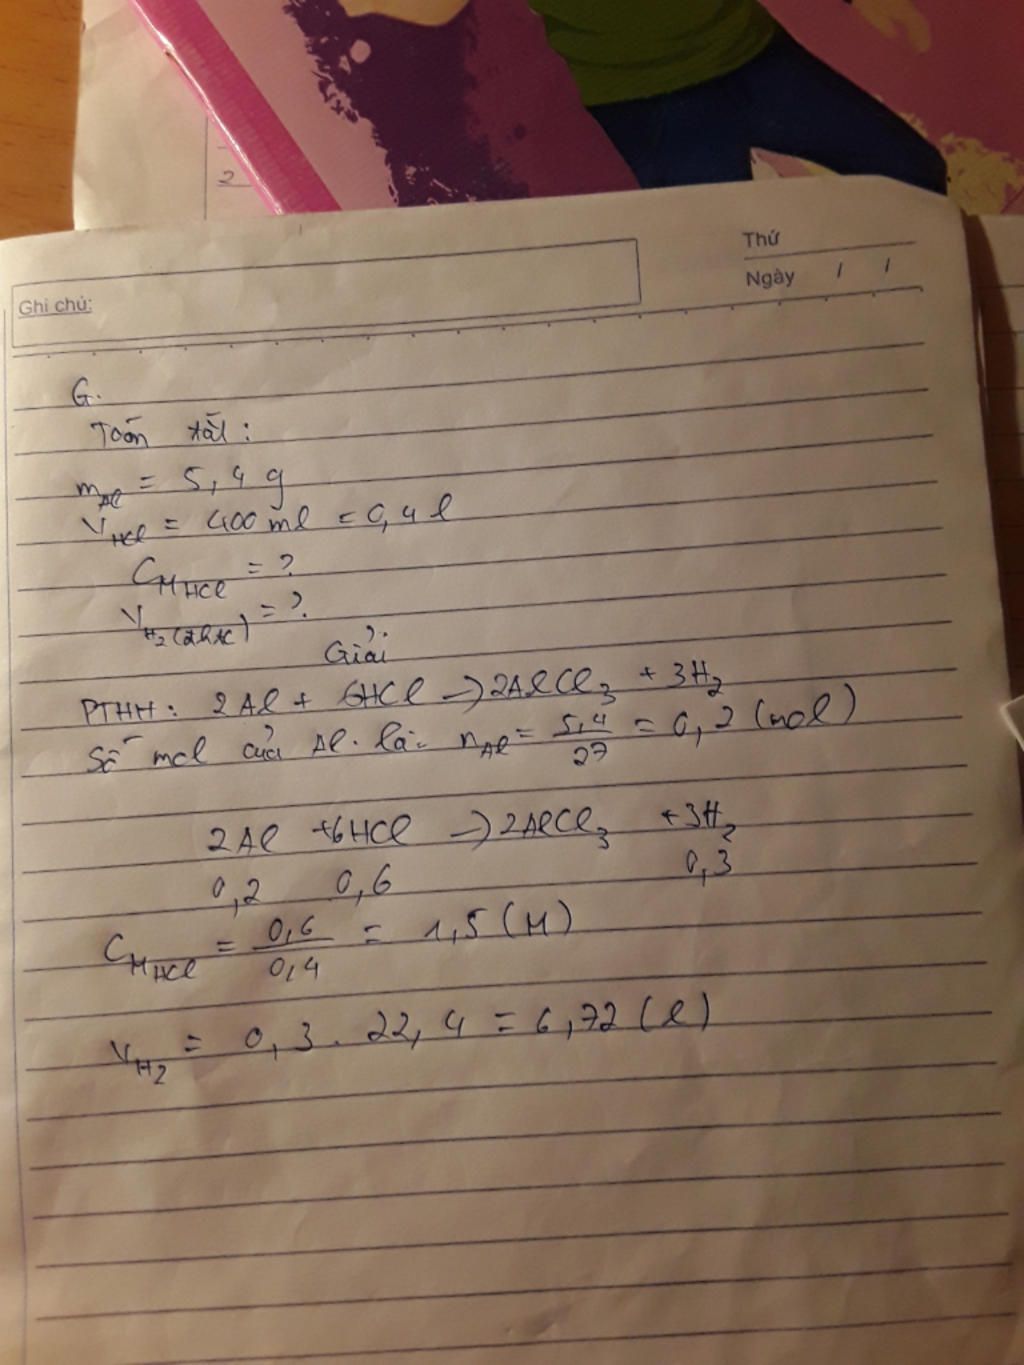 2
Thứ
Ngày / /
Ghi chú:
G.
Toán tắt:
mAl = 5,4 g
VHCl = 400 ml = 0,4 l
CM HCl = ?
VH2 (đktc) = ?
Giải
PTHH: 2Al + 6HCl → 2AlCl3 + 3H2
Số mol của Al là: nAl = 5,4/27 = 0,2 (mol)
2Al + 6HCl → 2AlCl3 + 3H2
0,2 0,6 0,3
CM HCl = 0,6/0,4 = 1,5 (M)
VH2 = 0,3 . 22,4 = 6,72 (l)